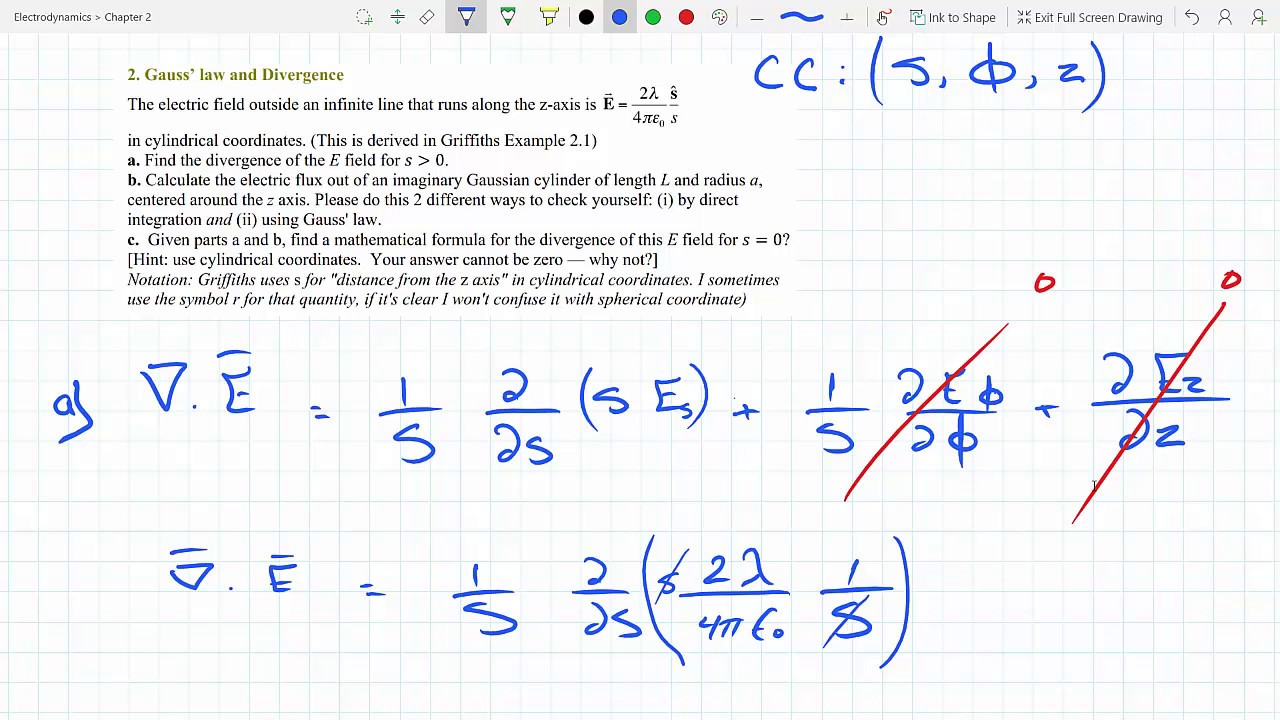 Electrodynamics > Chapter 2
Ink to Shape
Exit Full Screen Drawing
CC : (s, ϕ, z)
2. Gauss’ law and Divergence
The electric field outside an infinite line that runs along the z-axis is E⃗ = 2λ/4πε₀ ŝ/s
in cylindrical coordinates. (This is derived in Griffiths Example 2.1)
a. Find the divergence of the E field for s > 0.
b. Calculate the electric flux out of an imaginary Gaussian cylinder of length L and radius a,
centered around the z axis. Please do this 2 different ways to check yourself: (i) by direct
integration and (ii) using Gauss' law.
c. Given parts a and b, find a mathematical formula for the divergence of this E field for s = 0?
[Hint: use cylindrical coordinates. Your answer cannot be zero — why not?]
Notation: Griffiths uses s for "distance from the z axis" in cylindrical coordinates. I sometimes
use the symbol r for that quantity, if it's clear I won't confuse it with spherical coordinate)
0 0
a) ∇ · E̅ = 1/S ∂/∂s (S E_s) + 1/S ∂Eϕ/∂ϕ + ∂Ez/∂z
∇̅ · E̅ = 1/S ∂/∂s (s 2λ/4πε₀ 1/s)